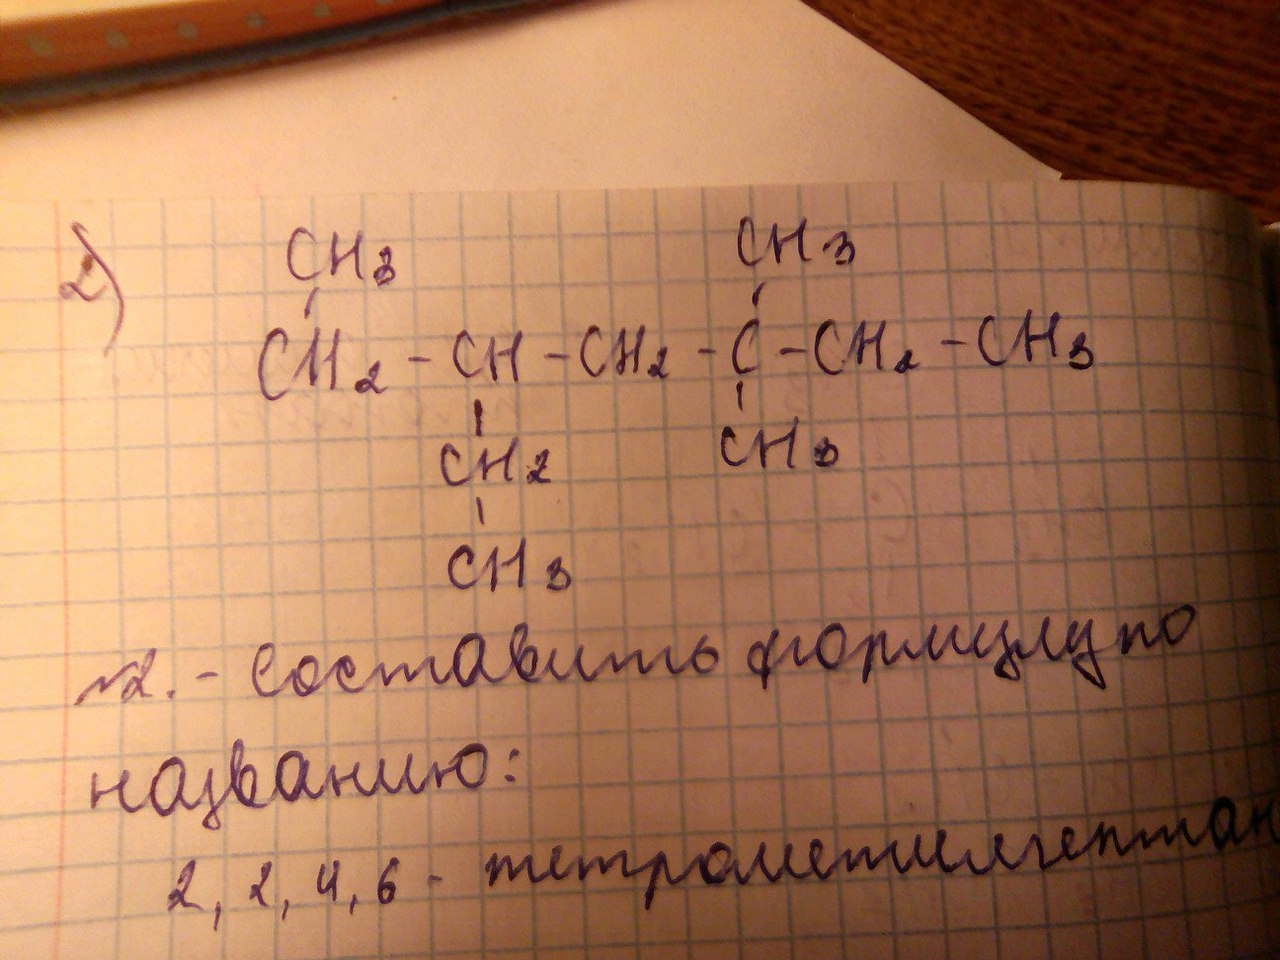 2)
CH3 CH3
CH2 - CH - CH2 - C - CH2 - CH3
CH2 CH3
CH3
№2. - составить формулу по
названию:
2, 2, 4, 6 - тетрометилгептан